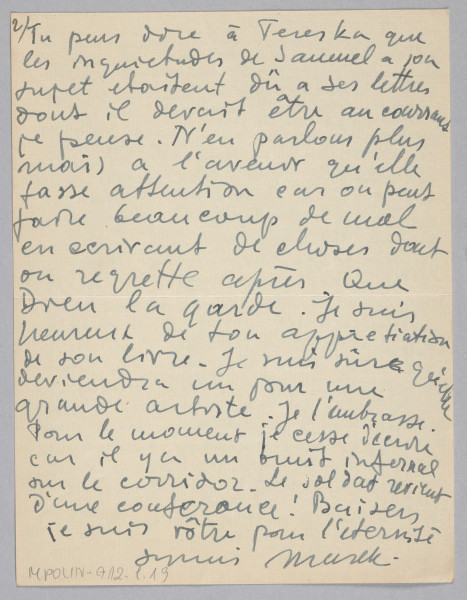 2/ Tu peux dire à Tereska que
les inquietudes de Samuel a son
sujet etaitent dû a ses lettres
dont il devait être au courrant
je pense. N'en parlons plus
mais a l'avenir qu'elle
fasse attention car on peut
faire beaucoup de mal
en ecrivant de choses dont
on regrette après Que
Dieu la garde. Je suis
heureux de ton appretiation
de son livre. Je suis sûre qu'elle
deviendra un jour une
grande artiste. Je l'embrasse.
Pour le moment je cesse d'ecrire
car il y a un bruit infernal
sur le corridor. Le soldat revient
d'une conferance! Baisers
je suis vôtre pour l'eternité
Marek.
MPOLIN-A12.1.19